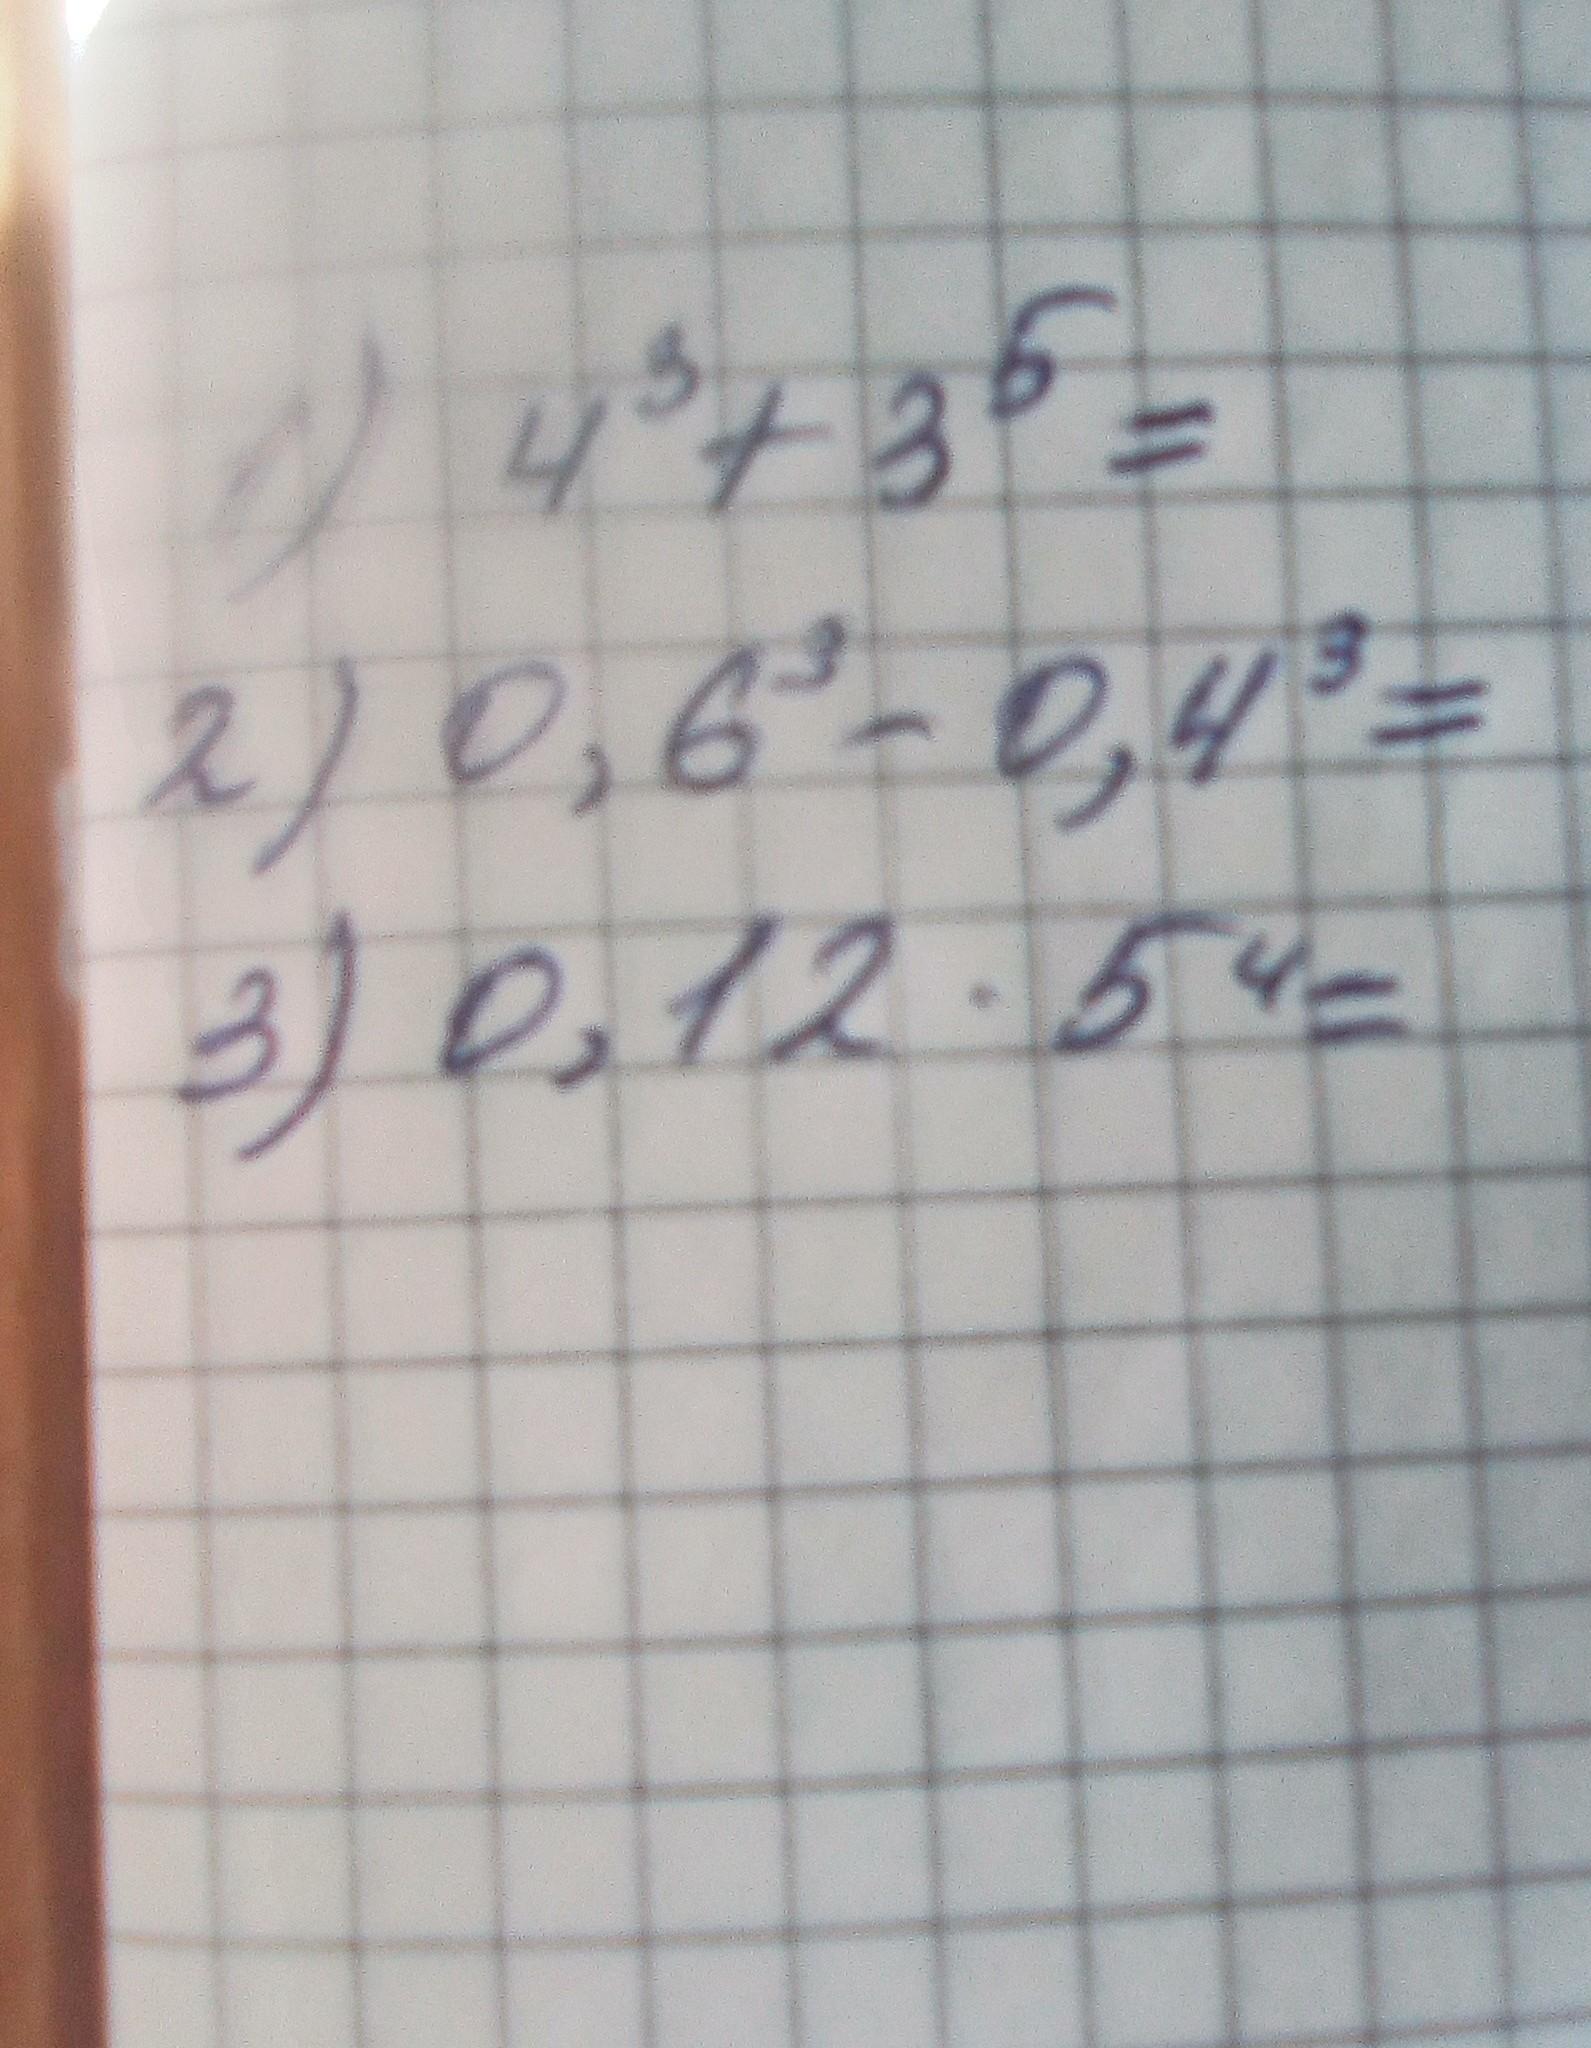 1) 4³+3⁵=
2) 0,6³-0,4³=
3) 0,12·5⁴=